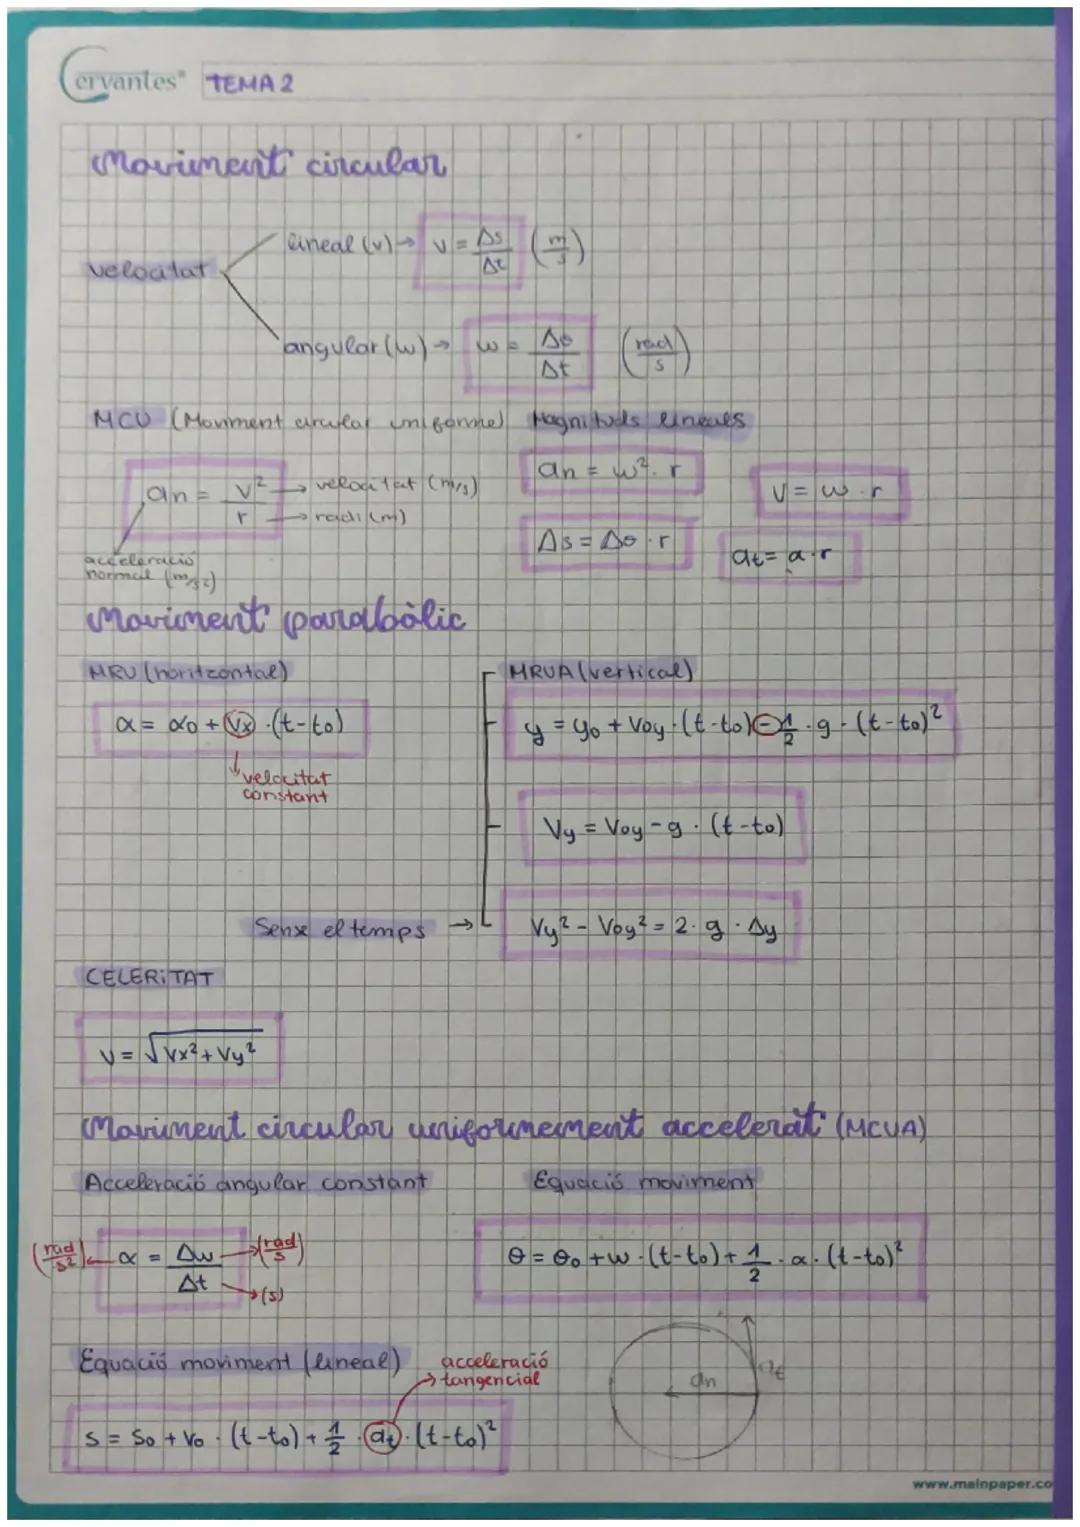 Cervantes® TEMA 2
Moviment circular
velocitat
lineal (v) → v = Δs/Δt (m/s)
angular (w) → w = Δθ/Δt (rad/s)
MCU (Moviment circular uniforme) Magnituds lineals
an = v²/r → velocitat (m/s) → radi (m)
acceleració normal (m/s²)
an = w² · r
v = w · r
Δs = Δθ · r
at = a · r
Moviment parabòlic
MRU (horitzontal)
x = x0 + vx · (t-t0)
velocitat
constant
MRUA (vertical)
y = y0 + v0y · (t-t0) - 1/2 · g · (t-t0)²
Vy = V0y - g · (t-t0)
Sense el temps → Vy² - V0y² = 2 · g · Δy
CELERiTAT
v = √Vx² + Vy²
Moviment circular uniformement accelerat (MCUA)
Acceleració angular constant
Equació moviment
(rad/s²) ← α = Δw/Δt → (rad/s) → (s)
θ = θ0 + w · (t-t0) + 1/2 · α · (t-t0)²
Equació moviment (lineal)
acceleració
tangencial
s = s0 + v0 · (t-t0) + 1/2 · at · (t-t0)²
an
at
www.mainpaper.co